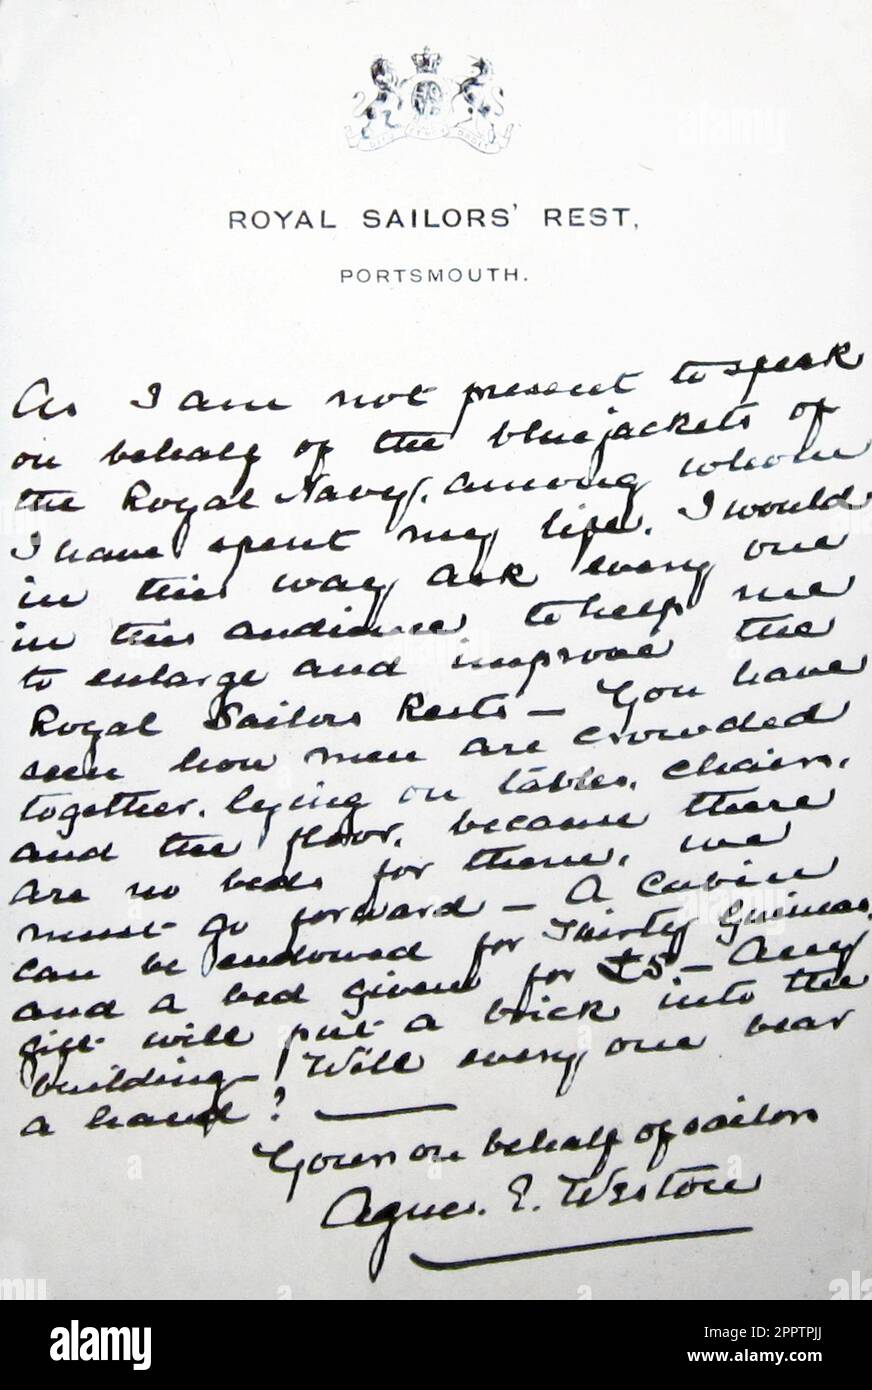 DIEU ET MON DROIT
ROYAL SAILORS' REST,
PORTSMOUTH.
As I am not present to speak
on behalf of the bluejackets of
the Royal Navy, among whom
I have spent my life, I would
in this way ask every one
in this audience to help me
to enlarge and improve the
Royal Sailors Rests — You have
seen how men are crowded
together, lying on tables, chairs,
and the floor, because there
are no beds for them, we
must go forward — A Cabin
can be endowed for Thirty Guineas,
and a bed given for £5 — Any
gift will put a brick into the
building — Will every one bear
a hand? —
Yours on behalf of sailors
Agnes. E. Weston
alamy
Image ID: 2PPTPJJ
www.alamy.com